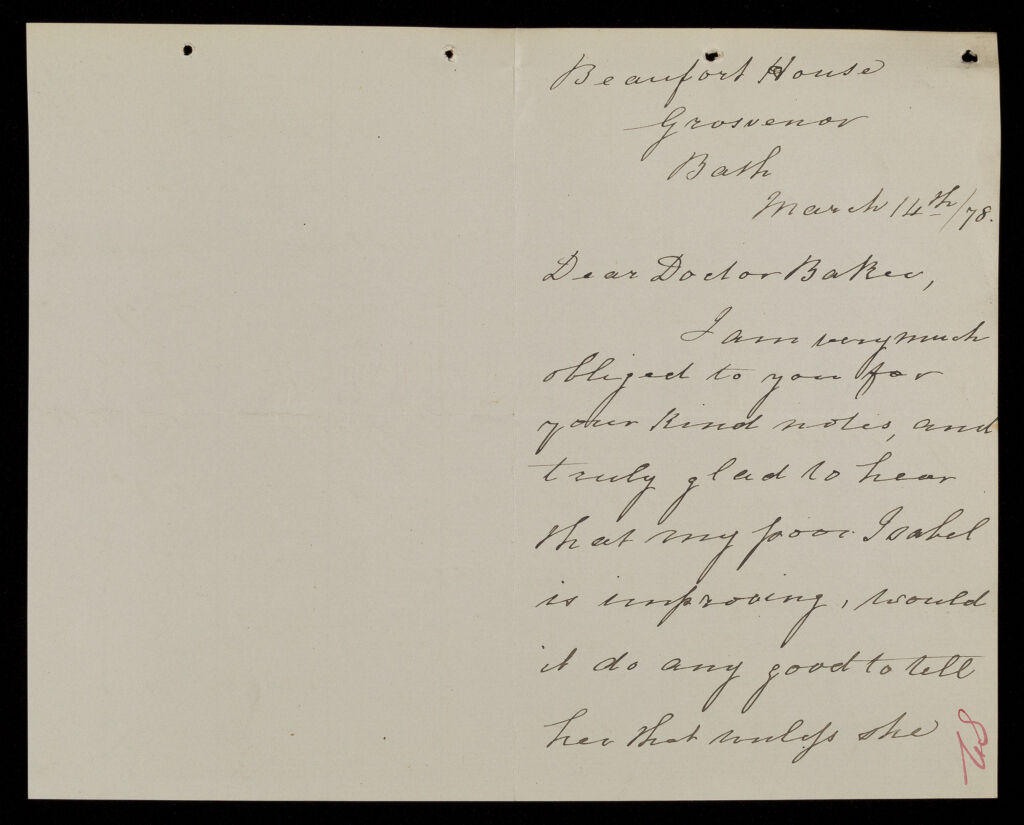 Beaufort House
Grosvenor
Bath
March 14th/78.
Dear Doctor Baker,
I am very much
obliged to you for
your kind notes, and
truly glad to hear
that my poor Isabel
is improving, would
it do any good to tell
her that unless she